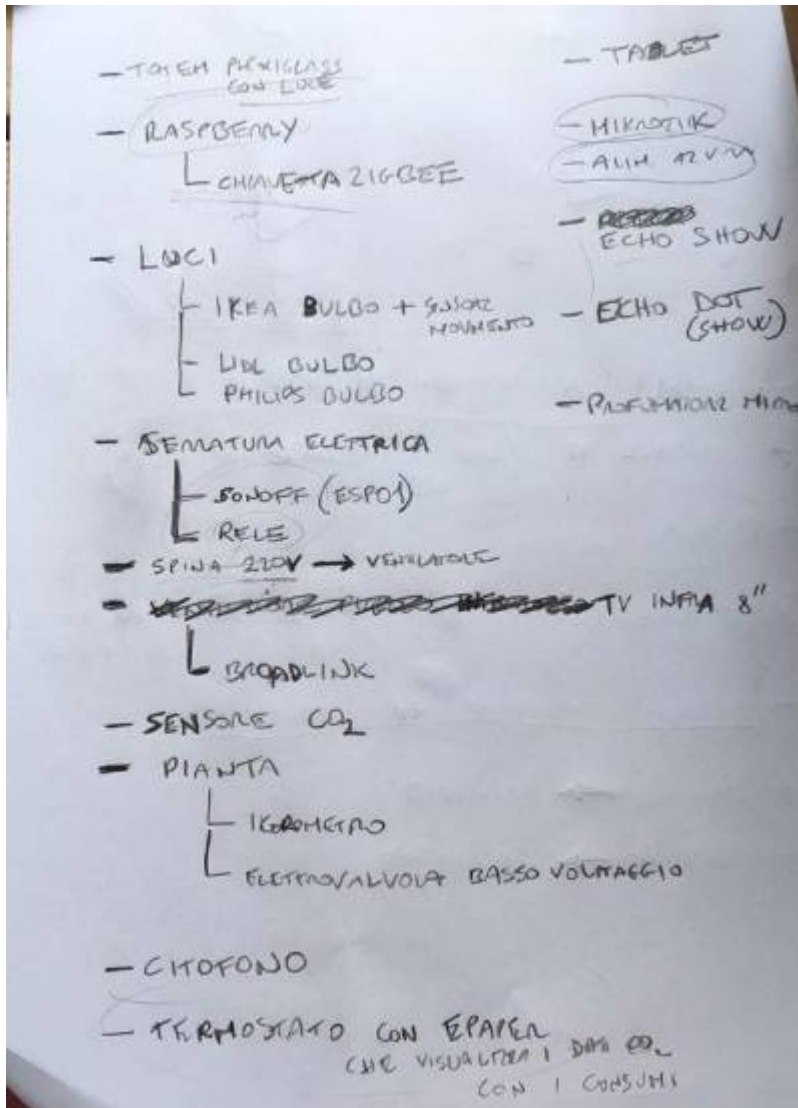 - TOTEM PLEXIGLASS
CON LUCE
- RASPBERRY
CHIAVETTA ZIGBEE
- LUCI
- IKEA BULBO + SENSORE
MOVIMENTO
- LIDL BULBO
- PHILIPS BULBO
- SERRATURA ELETTRICA
- SONOFF (ESP01)
- RELE
- SPINA 220V → VENTILATORE
- TV INFRA 8"
BROADLINK
- SENSORE CO2
- PIANTA
- IGROMETRO
ELETTROVALVOLA BASSO VOLTAGGIO
- CITOFONO
- TERMOSTATO CON EPAPER
CHE VISUALIZZA I DATI CO2
CON I CONSUMI
- TABLET
- MIKROTIK
- ALIM 12V
- ECHO SHOW
- ECHO DOT
(SHOW)